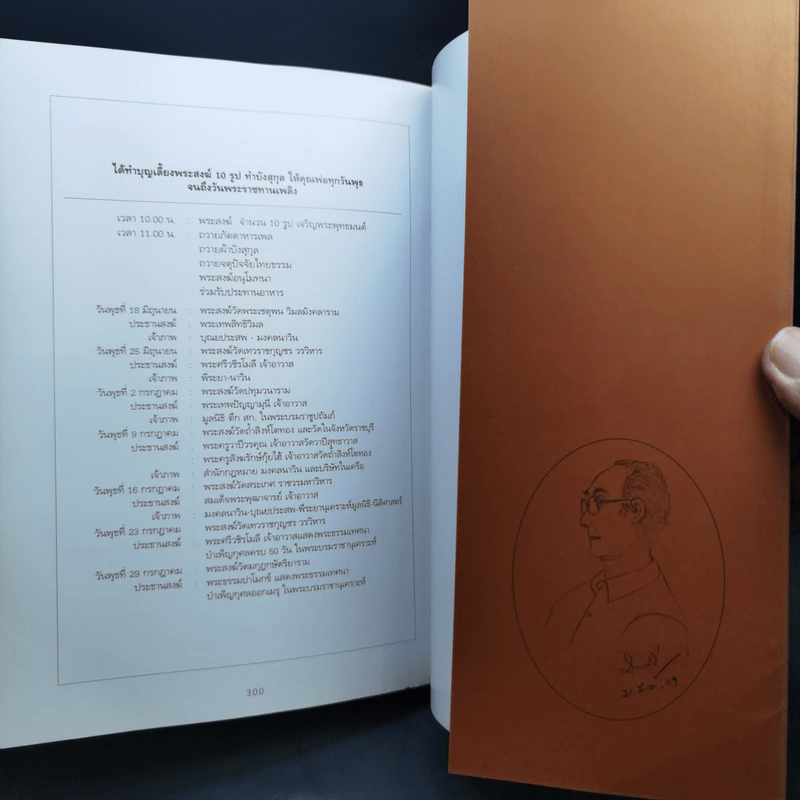 ได้ทำบุญเลี้ยงพระสงฆ์ 10 รูป ทำบังสุกุล ให้คุณพ่อทุกวันพุธ
จนถึงวันพระราชทานเพลิง
เวลา 10.00 น. : พระสงฆ์ จำนวน 10 รูป เจริญพระพุทธมนต์
เวลา 11.00 น. : ถวายภัตตาหารเพล
ถวายผ้าบังสุกุล
ถวายจตุปัจจัยไทยธรรม
พระสงฆ์อนุโมทนา
ร่วมรับประทานอาหาร
วันพุธที่ 18 มิถุนายน : พระสงฆ์วัดพระเชตุพน วิมลมังคลาราม
ประธานสงฆ์ : พระเทพสิทธิวิมล
เจ้าภาพ : บุณยประสพ - มงคลนาวิน
วันพุธที่ 25 มิถุนายน : พระสงฆ์วัดเทวราชกุญชร วรวิหาร
ประธานสงฆ์ : พระศรีวชิรโมลี เจ้าอาวาส
เจ้าภาพ : พีระยา-นาวิน
วันพุธที่ 2 กรกฎาคม : พระสงฆ์วัดปทุมวนาราม
ประธานสงฆ์ : พระเทพปัญญามุนี เจ้าอาวาส
เจ้าภาพ : มูลนิธิ ตึก สก. ในพระบรมราชูปถัมภ์
วันพุธที่ 9 กรกฎาคม : พระสงฆ์วัดถ้ำสิงห์โตทอง และวัดในจังหวัดราชบุรี
ประธานสงฆ์ : พระครูวาปีวรคุณ เจ้าอาวาสวัดวาปีสุทธาวาส
: พระครูสังฆรักษ์กุ้ยไฮ้ เจ้าอาวาสวัดถ้ำสิงห์โตทอง
เจ้าภาพ : สำนักกฎหมาย มงคลนาวิน และบริษัทในเครือ
วันพุธที่ 16 กรกฎาคม : พระสงฆ์วัดสระเกศ ราชวรมหาวิหาร
ประธานสงฆ์ : สมเด็จพระพุฒาจารย์ เจ้าอาวาส
เจ้าภาพ : มงคลนาวิน-บุณยประสพ-พีระยานุเคราะห์มูลนิธิ-นิติศาสตร์
วันพุธที่ 23 กรกฎาคม : พระสงฆ์วัดเทวราชกุญชร วรวิหาร
ประธานสงฆ์ : พระศรีวชิรโมลี เจ้าอาวาสแสดงพระธรรมเทศนา
บำเพ็ญกุศลครบ 50 วัน ในพระบรมราชานุเคราะห์
วันพุธที่ 29 กรกฎาคม : พระสงฆ์วัดมกุฎกษัตริยาราม
ประธานสงฆ์ : พระธรรมปาโมกข์ แสดงพระธรรมเทศนา
บำเพ็ญกุศลออกเมรุ ในพระบรมราชานุเคราะห์
300